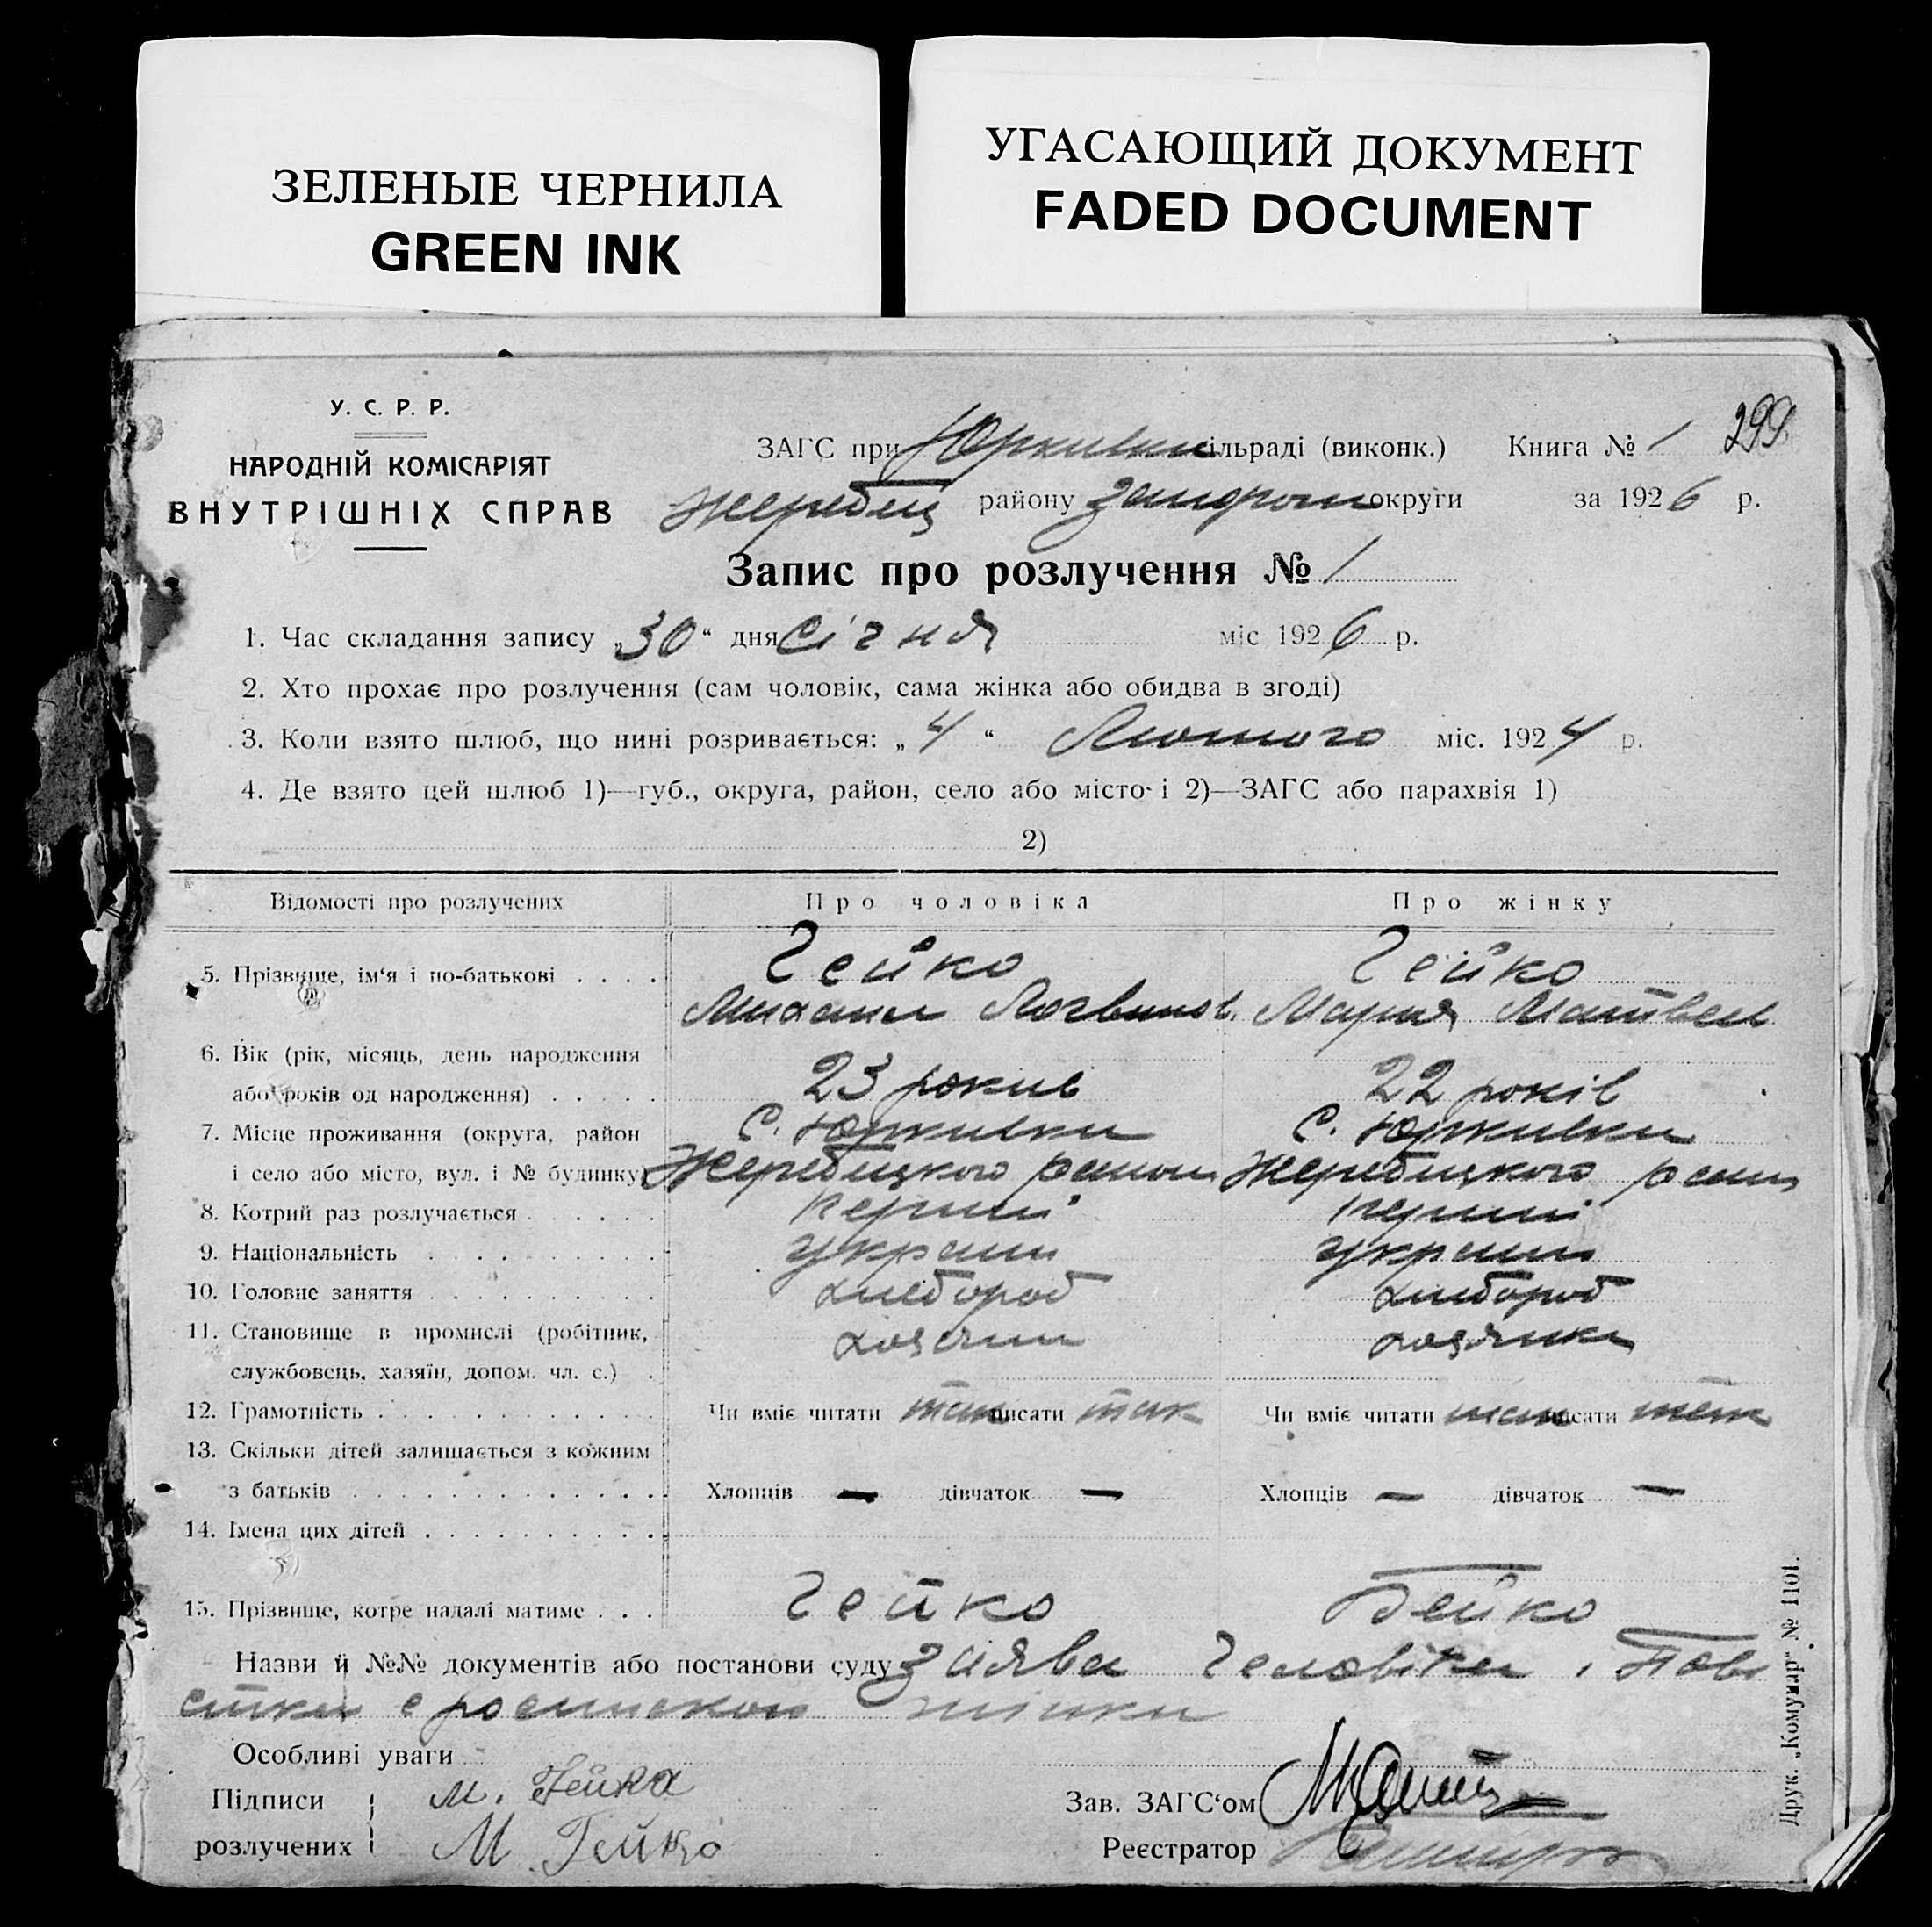 ЗЕЛЕНЫЕ ЧЕРНИЛА
GREEN INK
УГАСАЮЩИЙ ДОКУМЕНТ
FADED DOCUMENT
299
У. С. Р. Р.
НАРОДНІЙ КОМІСАРІЯТ
ВНУТРІШНІХ СПРАВ
ЗАГС при Юркивки сільраді (виконк.) Книга № 1
Жеребец району Запорож округи за 1926 р.
Запис про розлучення № 1
1. Час складання запису „30“ дня Січня міс 1926 р.
2. Хто прохає про розлучення (сам чоловік, сама жінка або обидва в згоді)
3. Коли взято шлюб, що нині розривається: „4“ Лютого міс. 1924 р.
4. Де взято цей шлюб 1)—губ., округа, район, село або місто і 2)—ЗАГС або парахвія 1)
2)
Відомості про розлучених Про чоловіка Про жінку
5. Прізвище, ім‘я і по-батькові . . . . Гейко Гейко
Михаил Логвинов. Мария Матвеи
6. Вік (рік, місяць, день народження
або років од народження) . . . . . 23 рокив 22 років
7. Місце проживання (округа, район С. Юркивки С. Юркивки
і село або місто, вул. і № будинку) Жеребицкого район Жеребицкого
8. Котрий раз розлучається . . . . . . перший перший
9. Національність . . . . . . . . . . україн україн
10. Головне заняття . . . . . . . . . . хлебороб хлибороб
11. Становище в промислі (робітник, хозяин хозяйка
службовець, хазяїн, допом. чл. с.) .
12. Грамотність . . . . . . . . . . . . Чи вміє читати так писати так Чи вміє читати так писати так
13. Скільки дітей залишається з кожним
з батьків . . . . . . . . . . . . . . Хлопців — дівчаток — Хлопців — дівчаток —
14. Імена цих дітей . . . . . . . . . .
15. Прізвище, котре надалі матиме . . . Гейко Гейко
Назви й №№ документів або постанови суду заява человіка і Пове
стка с роспискою жінки
Особливі уваги
Підписи М. Гейка
розлучених М. Гейко
Зав. ЗАГС‘ом
Реєстратор
Друк. „Комунар“ № 1101.